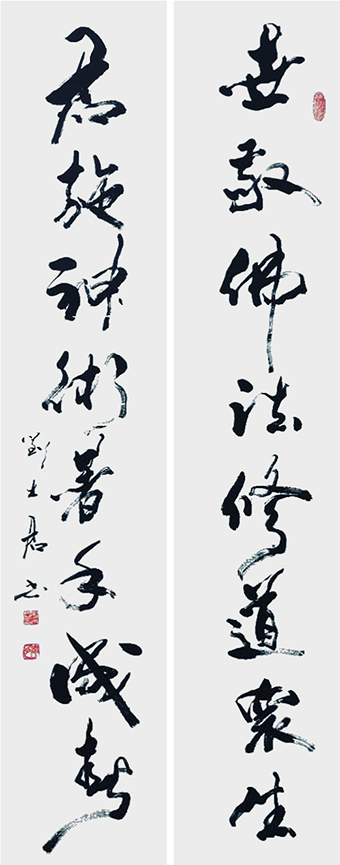 世敬佛法修道衆生
君施神術著手成春
劉士君书